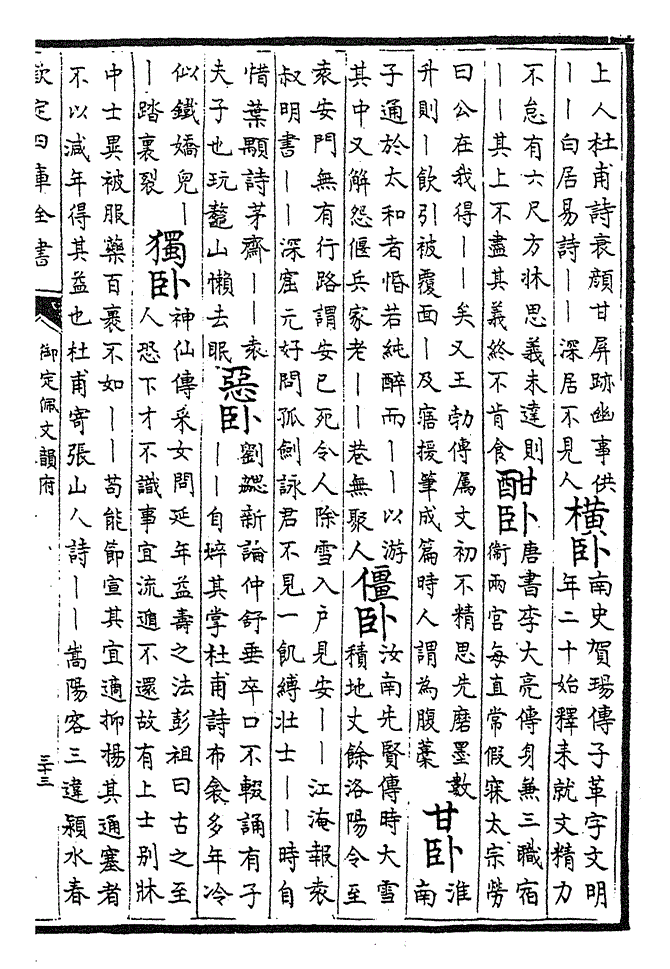 上人杜甫詩衰顔甘屏跡幽事供
｜｜白居易詩｜｜深居不見人
橫臥
南史賀瑒傳子革字文明
年二十始釋耒就文精力
不怠有六尺方牀思義未達則
｜｜其上不盡其義終不肯食
酣臥
唐書李大亮傳身兼三職宿
衞兩宮每直常假寐太宗勞
曰公在我得｜｜矣又王勃傳屬文初不精思先磨墨數
升則｜飲引被覆面｜及寤援筆成篇時人謂為腹藁
甘臥
淮
南
子通於太和者惛若純醉而｜｜以游
其中又解怨偃兵家老｜｜巷無聚人
僵臥
汝南先賢傳時大雪
積地丈餘洛陽令至
袁安門無有行路謂安已死令人除雪入戶見安｜｜江淹報袁
叔明書｜｜深窟元好問孤劍詠君不見一飢縛壯士｜｜時自
惜葉顒詩茅齋｜｜袁
夫子也玩鼇山懶去眠
惡臥
劉勰新論仲舒垂卒口不輟誦有子
｜｜自焠其掌杜甫詩布衾多年冷
似鐵嬌兒｜
｜踏裏裂
獨臥
神仙傳采女問延年益壽之法彭祖曰古之至
人恐下才不識事宜流遁不還故有上士別牀
中士異被服藥百裹不如｜｜苟能節宣其宜適抑揚其通塞者
不以減年得其益也杜甫寄張山人詩｜｜嵩陽客三違潁水春
欽定四庫全書
御定佩文韻府
三十三